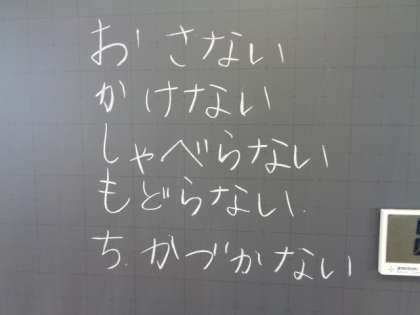 おさない
かけない
しゃべらない
もどらない.
ち.かづかない